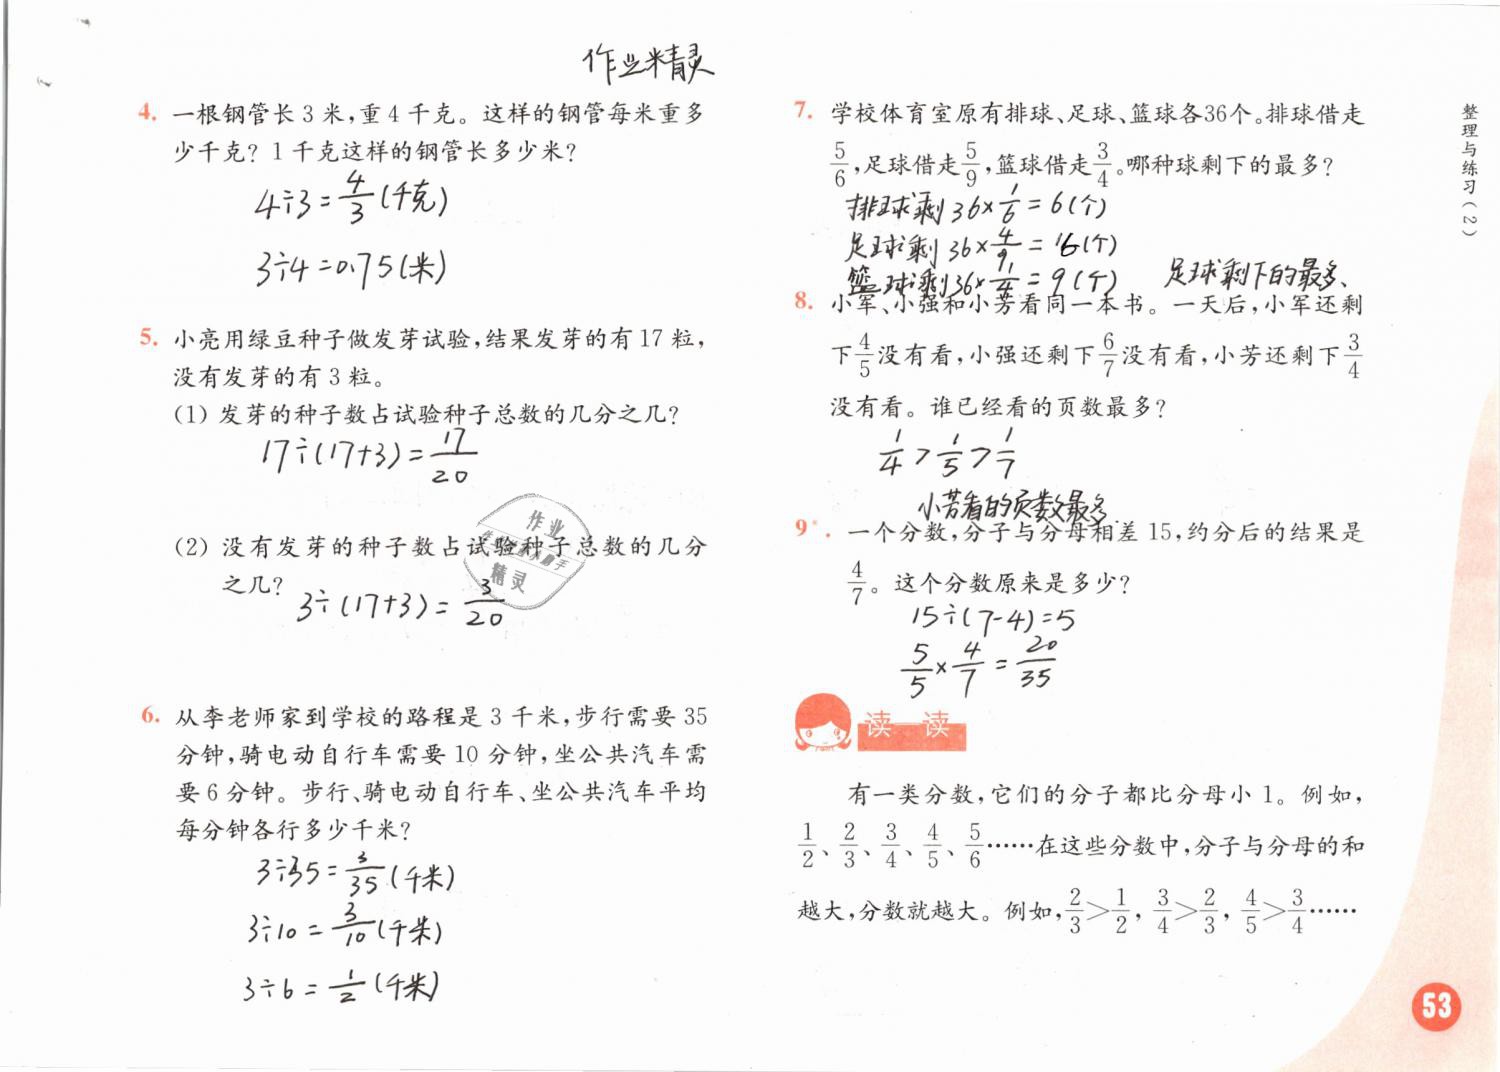 作业精灵
4. 一根钢管长3米,重4千克。这样的钢管每米重多
少千克？1千克这样的钢管长多少米？
4÷3=4/3(千克)
3÷4=0.75(米)
5. 小亮用绿豆种子做发芽试验,结果发芽的有17粒,
没有发芽的有3粒。
(1) 发芽的种子数占试验种子总数的几分之几？
17÷(17+3)=17/20
(2) 没有发芽的种子数占试验种子总数的几分
之几？
3÷(17+3)=3/20
作业
精灵
6. 从李老师家到学校的路程是3千米,步行需要35
分钟,骑电动自行车需要10分钟,坐公共汽车需
要6分钟。步行、骑电动自行车、坐公共汽车平均
每分钟各行多少千米？
3÷35=3/35(千米)
3÷10=3/10(千米)
3÷6=1/2(千米)
7. 学校体育室原有排球、足球、篮球各36个。排球借走
5/6,足球借走5/9,篮球借走3/4。哪种球剩下的最多？
排球剩36×1/6=6(个)
足球剩36×4/9=16(个)
篮球剩36×1/4=9(个) 足球剩下的最多、
8. 小军、小强和小芳看同一本书。一天后,小军还剩
下4/5没有看,小强还剩下6/7没有看,小芳还剩下3/4
没有看。谁已经看的页数最多？
1/4>1/5>1/7
小芳看的页数最多.
9*. 一个分数,分子与分母相差15,约分后的结果是
4/7。这个分数原来是多少？
15÷(7-4)=5
5/5×4/7=20/35
读一读
有一类分数,它们的分子都比分母小1。例如,
1/2、2/3、3/4、4/5、5/6……在这些分数中,分子与分母的和
越大,分数就越大。例如,2/3>1/2,3/4>2/3,4/5>3/4……
整理与练习(2)
53